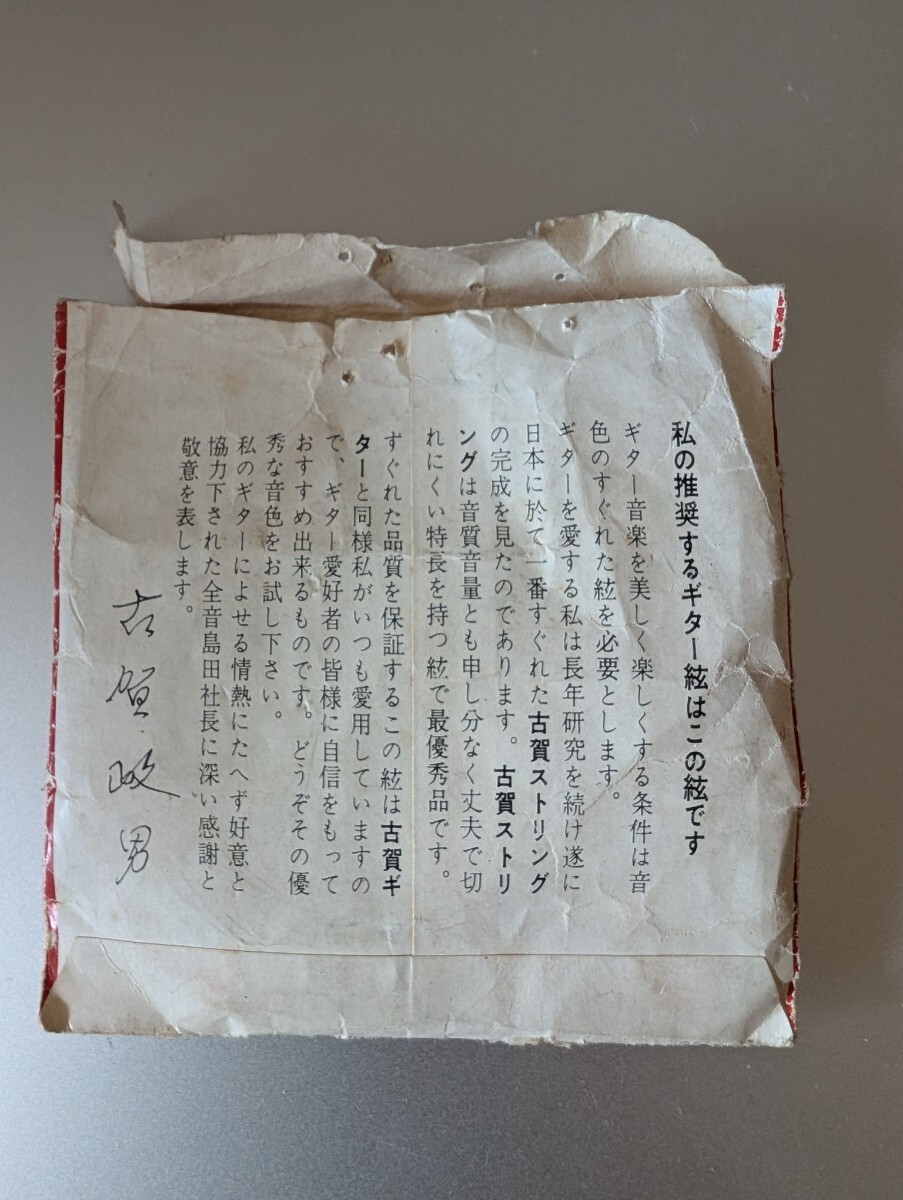 私の推奨するギター絃はこの絃です
ギター音楽を美しく楽しくする条件は音
色のすぐれた絃を必要とします。
ギターを愛する私は長年研究を続け遂に
日本に於て一番すぐれた古賀ストリング
の完成を見たのであります。古賀ストリ
ングは音質音量とも申し分なく丈夫で切
れにくい特長を持つ絃で最優秀品です。
すぐれた品質を保証するこの絃は古賀ギ
ターと同様私がいつも愛用していますの
で、ギター愛好者の皆様に自信をもって
おすすめ出来るものです。どうぞその優
秀な音色をお試し下さい。
私のギターによせる情熱にたへず好意と
協力下された全音島田社長に深い感謝と
敬意を表します。
古賀政男